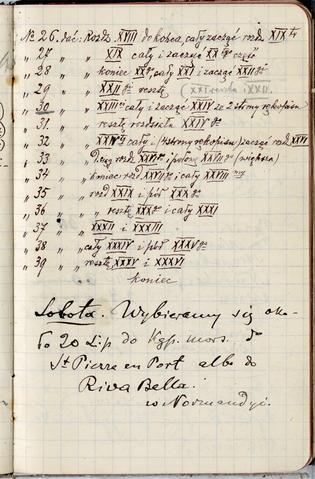 № 26. dać: Rozdz. XVIII do końca, cały zacząć rozd. XIX ty
" 27 " " XIX cały i zacząć XX część
" 28 " " koniec XX, cały XXI i zacząć XXII
" 29 " " XXII resztę
" 30 " " XXIII cały i zacząć XXIV ze 2 strony rękopisu
" 31. " " resztę rozdziału XXIV
" 32 " " cały i strony rękopisu zacząć rozd. XXVI
" 33 " " Drugą rozd. XXVI i połowę XXVII (większą)
" 34 " " koniec rozd. XXVII i cały XXVIII
" 35 " " rozd XXIX i pół XXX
" 36 " " resztę XXX i cały XXXI
" 37 " " XXXII i XXXIII
" 38 " " cały XXXIV i pół XXXV
" 39 " " resztę XXXV i XXXVI
koniec
Sobota. Wybieramy się oko-
ło 20 Lip do Kąp. mors. do
St Pierre en Port albo do
Riva Bella.
w Normandyi.